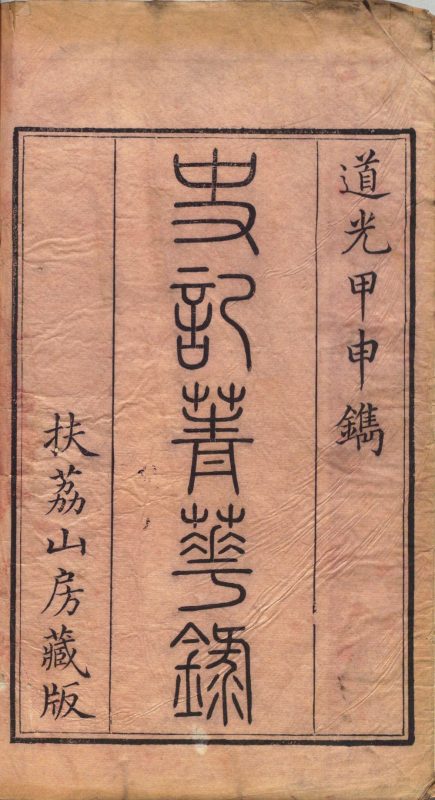 道光甲申鐫
史記菁華錄
扶荔山房藏版